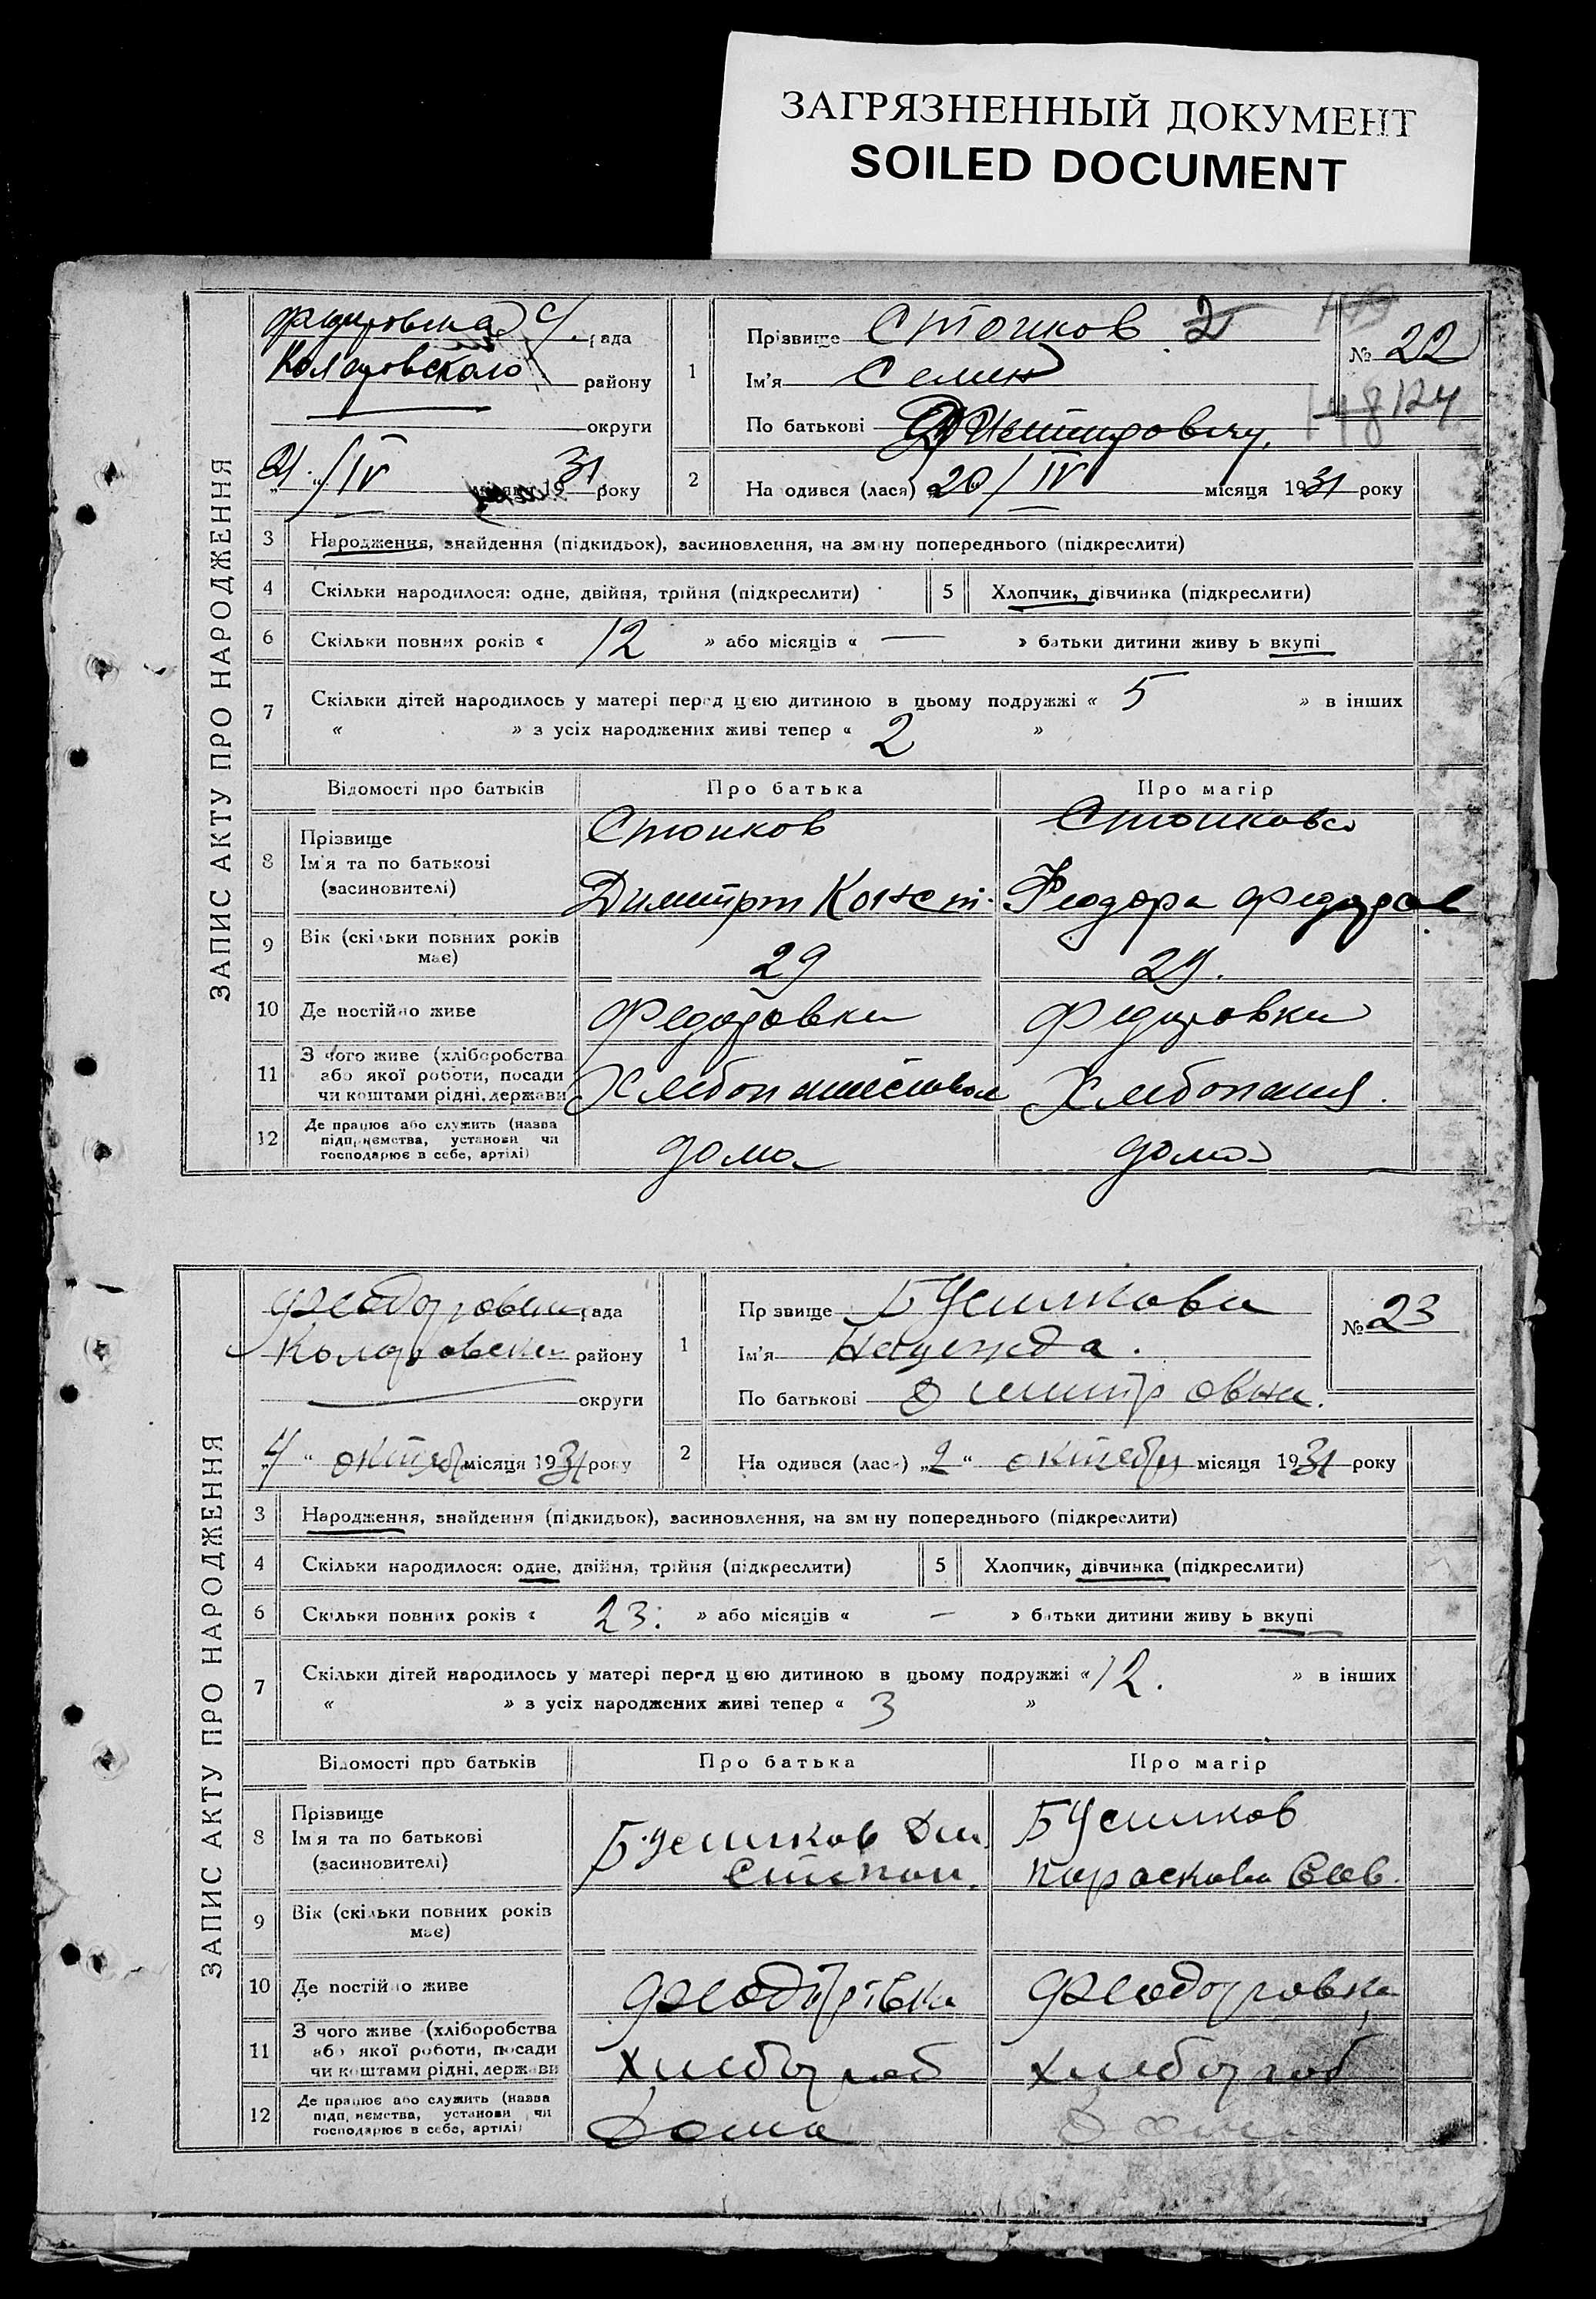 ЗАГРЯЗНЕННЫЙ ДОКУМЕНТ
SOILED DOCUMENT
ЗАПИС АКТУ ПРО НАРОДЖЕННЯ
с/ рада
району
округи
21/IV 1931 року
1
Прізвище Стоиков
Ім'я Семен
По батькові
№ 22
124
2
На одився (лася) 20/IV місяця 1931 року
3 Народження, знайдення (підкидьок), засиновлення, на зміну попереднього (підкреслити)
4 Скільки народилося: одне, двійня, трійня (підкреслити)
5 Хлопчик, дівчинка (підкреслити)
6 Скільки повних років « 12 » або місяців « — » батьки дитини живу ь вкупі
7 Скільки дітей народилось у матері перед цією дитиною в цьому подружжі « 5 » в інших
« » з усіх народжених живі тепер « 2 »
Відомості про батьків Про батька Про матір
8 Прізвище
Ім'я та по батькові
(засиновителі)
Стоиков
Димитри Конст.
Стоикова
Феодора Федоров
9 Вік (скільки повних років має)
29
29.
10 Де постійно живе
Федоровка
Федоровка
11 З чого живе (хліборобства або якої роботи, посади чи коштами рідні, держави
Хлебопашеством
Хлебопаш.
12 Де працює або служить (назва підприємства, установи чи господарює в себе, артілі)
дома
дома
ЗАПИС АКТУ ПРО НАРОДЖЕННЯ
Феодоровки рада
Коларовски району
округи
4 " октеб місяця 1931 року
1
Пр звище
Ім'я Надежда.
По батькові Дмитровна.
№ 23
2
На одився (лася) „2" октебр місяця 1931 року
3 Народження, знайдення (підкидьок), засиновлення, на зм ну попереднього (підкреслити)
4 Скільки народилося: одне, двійня, трійня (підкреслити)
5 Хлопчик, дівчинка (підкреслити)
6 Скільки повних років « 23. » або місяців « — » батьки дитини живу ь вкупі
7 Скільки дітей народилось у матері перед цією дитиною в цьому подружжі « 12. » в інших
« » з усіх народжених живі тепер « 3 »
Відомості про батьків Про батька Про матір
8 Прізвище
Ім'я та по батькові
(засиновителі)
Дми
Степан.
Параскова Сав.
9 Вік (скільки повних років має)
10 Де постійно живе
Феодорівка
Феодоровка
11 З чого живе (хліборобства або якої роботи, посади чи коштами рідні, держави
Хлебороб
Хлебороб
12 Де працює або служить (назва підприємства, установи чи господарює в себе, артілі)
Дома
Дома